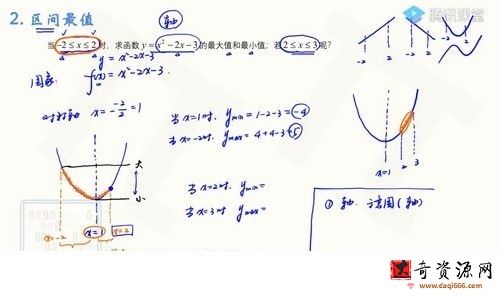 2. 区间最值
轴
腾讯课堂
当-2≤x≤2时，求函数 y=x²-2x-3的最大值和最小值；若2≤x≤3呢？
y = x²-2x-3
f(x) = x²-2x-3.
对称轴 x = -\frac{-2}{2} = 1
当 x=1 时. y_min = 1-2-3 = -4
当 x=-2 时. y_max = 4+4-3 = 5
当 x=2 时. y_min =
当 x=3 时 y_max =
-2 2
-2 2
x=1 2 3
大
小
x=-2 x=1 x=2
① 轴.
(轴)
奇资源网
www.daqi666.com